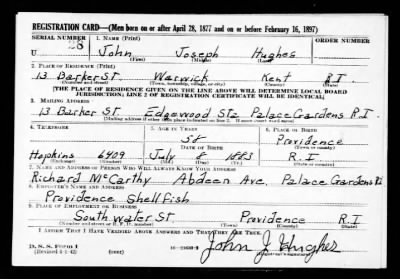 REGISTRATION CARD—(Men born on or after April 28, 1877 and on or before February 16, 1897)
SERIAL NUMBER 1. NAME (Print) ORDER NUMBER
U 28 John Joseph Hughes
(First) (Middle) (Last)
2. PLACE OF RESIDENCE (Print)
13 Barker St. Warwick Kent R.I.
(Number and street) (Town, township, village, or city) (County) (State)
[THE PLACE OF RESIDENCE GIVEN ON THE LINE ABOVE WILL DETERMINE LOCAL BOARD
JURISDICTION; LINE 2 OF REGISTRATION CERTIFICATE WILL BE IDENTICAL]
3. MAILING ADDRESS
13 Barker St. Edgewood Sta Palace Gardens R.I.
[Mailing address if other than place indicated on line 2. If same insert word same]
4. TELEPHONE 5. AGE IN YEARS 6. PLACE OF BIRTH
58 Providence
DATE OF BIRTH (Town or county)
Hopkins 6409 July 8 1883 R.I.
(Exchange) (Number) (Mo.) (Day) (Yr.) (State or country)
7. NAME AND ADDRESS OF PERSON WHO WILL ALWAYS KNOW YOUR ADDRESS
Richard McCarthy Abdeen Ave. Palace Gardens R.I.
8. EMPLOYER'S NAME AND ADDRESS
Providence Shellfish
9. PLACE OF EMPLOYMENT OR BUSINESS
South Water St. Providence R.I.
(Number and street or R. F. D. number) (Town) (County) (State)
I AFFIRM THAT I HAVE VERIFIED ABOVE ANSWERS AND THAT THEY ARE TRUE.
D. S. S. FORM 1
(Revised 4-1-42) (over) John J Hughes